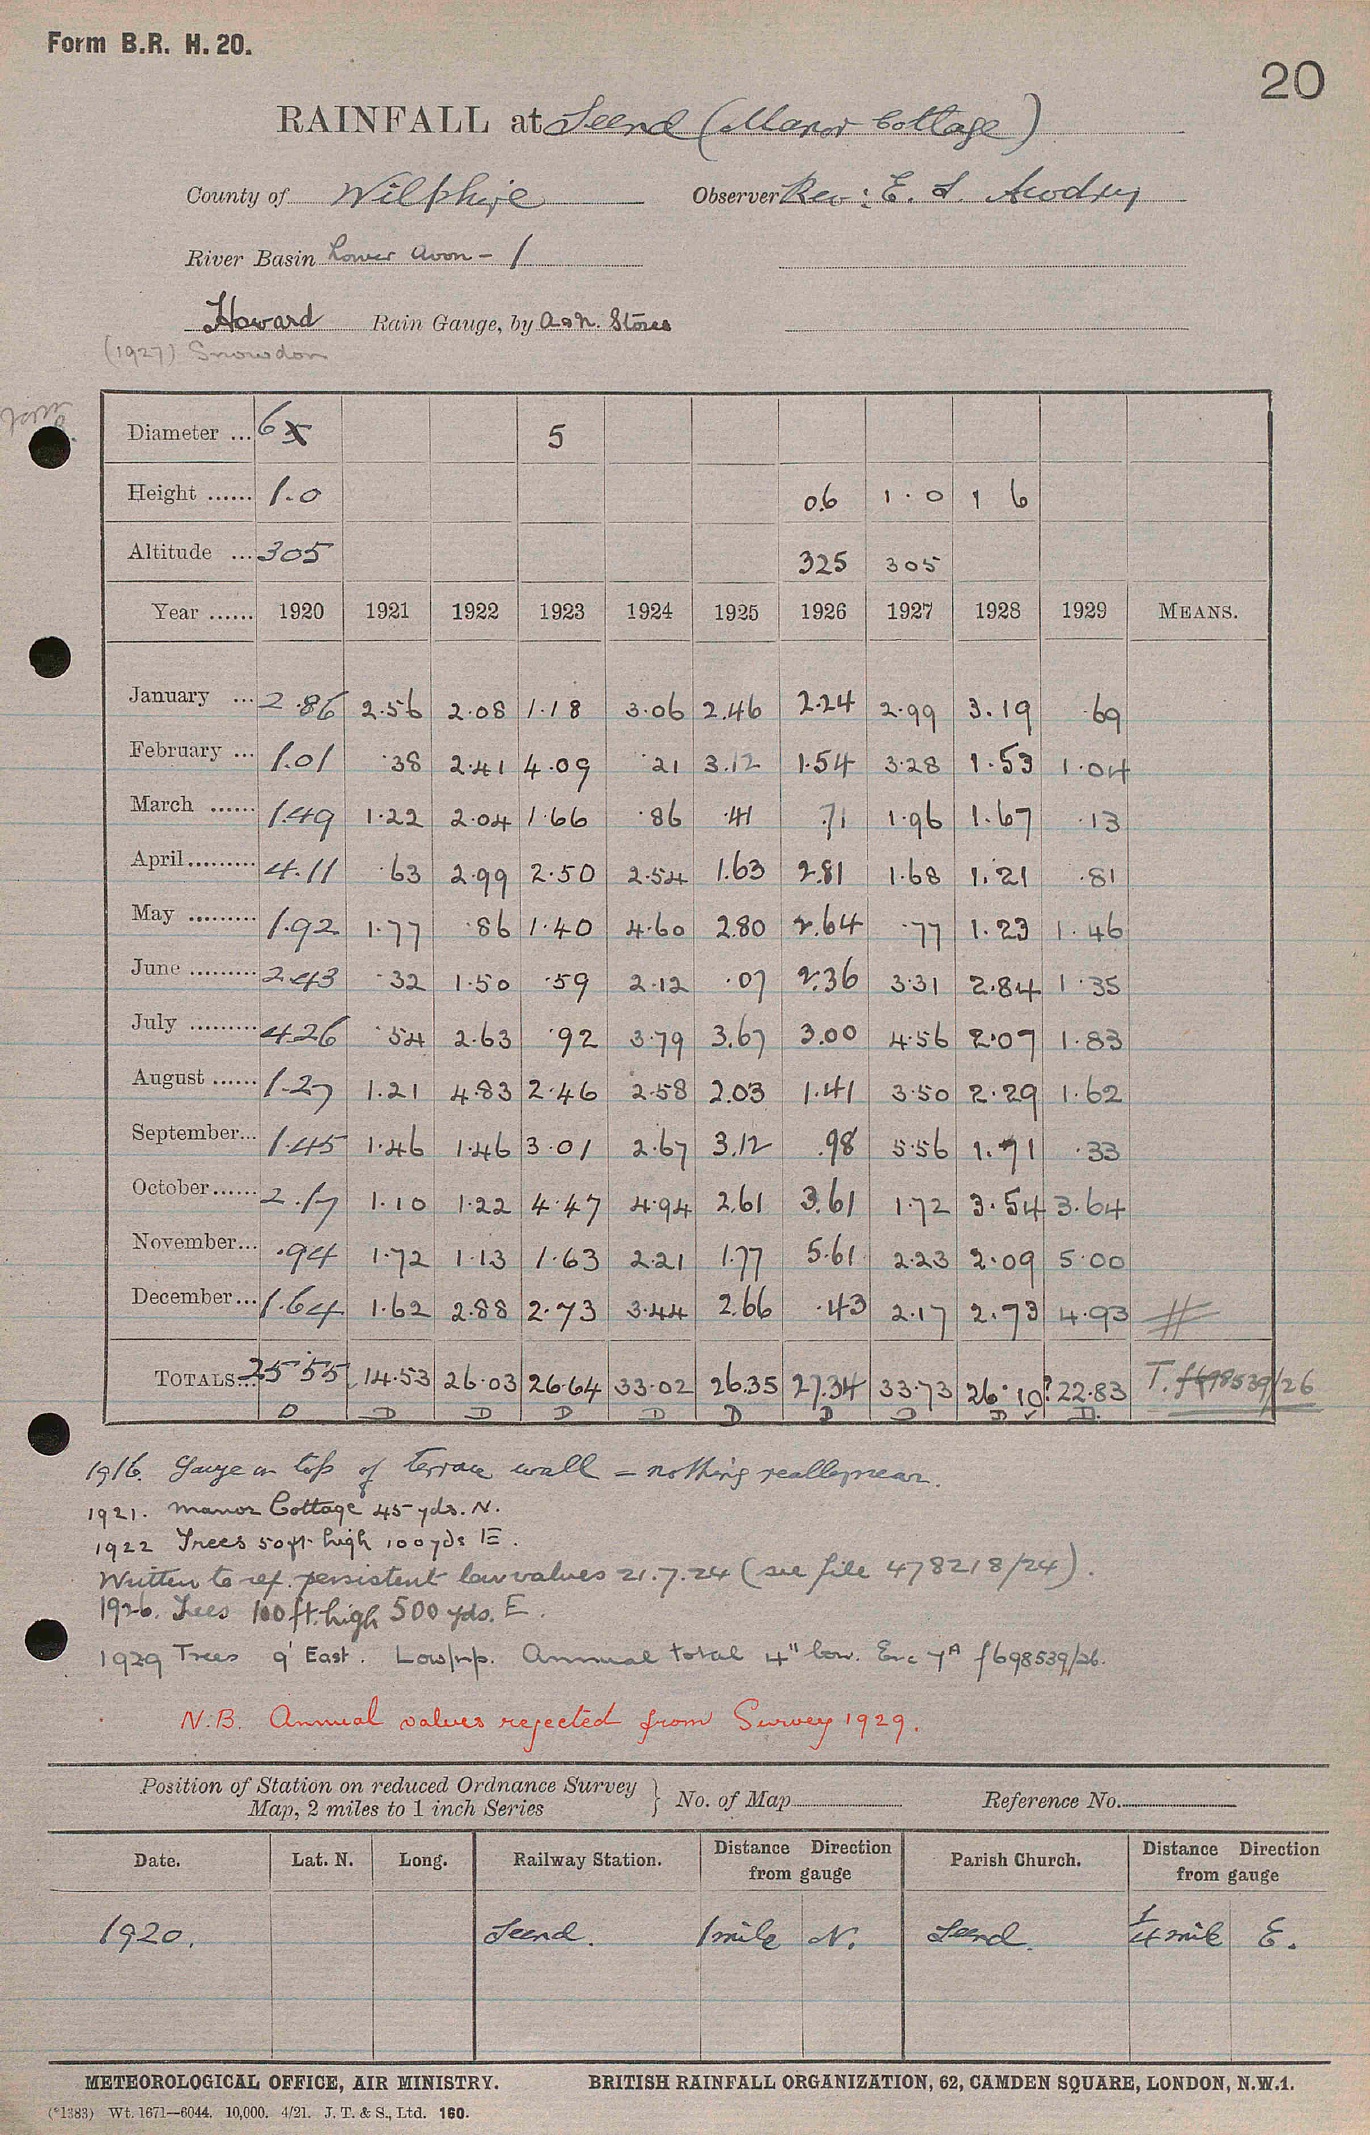 Form B.R. H. 20.
20
RAINFALL at Seend (Manor Cottage)
County of Wiltshire Observer Rev: E. L. Awdry
River Basin Lower Avon - 1
Howard Rain Gauge, by A & N. Stores
(1927) Snowdon
Diameter ... 6 5 5
Height ...... 1.0 0.6 1.0 1 6
Altitude ... 305 325 305
Year ...... 1920 1921 1922 1923 1924 1925 1926 1927 1928 1929 MEANS.
January ... 2.86 2.56 2.08 1.18 3.06 2.46 2.24 2.99 3.19 .69
February ... 1.01 .38 2.41 4.09 .21 3.12 1.54 3.28 1.53 1.04
March ...... 1.49 1.22 2.04 1.66 .86 .41 .71 1.96 1.67 .13
April ......... 4.11 .63 2.99 2.50 2.54 1.63 2.81 1.68 1.21 .81
May ......... 1.92 1.77 .86 1.40 4.60 2.80 2.64 .77 1.23 1.46
June ......... 2.43 .32 1.50 .59 2.12 .07 2.36 3.31 2.84 1.35
July ......... 4.26 .54 2.63 .92 3.79 3.67 3.00 4.56 2.07 1.83
August ...... 1.27 1.21 4.83 2.46 2.58 2.03 1.41 3.50 2.29 1.62
September... 1.45 1.46 1.46 3.01 2.67 3.12 .98 5.56 1.71 .33
October ...... 2.17 1.10 1.22 4.47 4.94 2.61 3.61 1.72 3.54 3.64
November... 0.94 1.72 1.13 1.63 2.21 1.77 5.61 2.23 2.09 5.00
December ... 1.64 1.62 2.88 2.73 3.44 2.66 .43 2.17 2.73 4.93
TOTALS... 25.55 14.53 26.03 26.64 33.02 26.35 27.34 33.73 26.10 ? 22.83 T. f698539/26
D D D D D D D D D ✓ D.
1916. Gauge on top of terrace wall - nothing really near.
1921. Manor Cottage 45 yds. N.
1922 Trees 50 ft. high 100 yds E.
Written to ref. persistent low values 21.7.24 (see file 478218/24).
1926. Trees 100 ft. high 500 yds. E.
1929 Trees 9' East. Low Annual total 4" low. f698539/26.
N.B. Annual values rejected from Survey 1929.
Position of Station on reduced Ordnance Survey
Map, 2 miles to 1 inch Series } No. of Map Reference No.
Date. Lat. N. Long. Railway Station. Distance Direction from gauge Parish Church. Distance Direction from gauge
1920. Seend. 1 mile N. Seend. 1/4 mile E.
METEOROLOGICAL OFFICE, AIR MINISTRY. BRITISH RAINFALL ORGANIZATION, 62, CAMDEN SQUARE, LONDON, N.W.1.
(*1383) Wt. 1671—6044. 10,000. 4/21. J. T. & S., Ltd. 160.